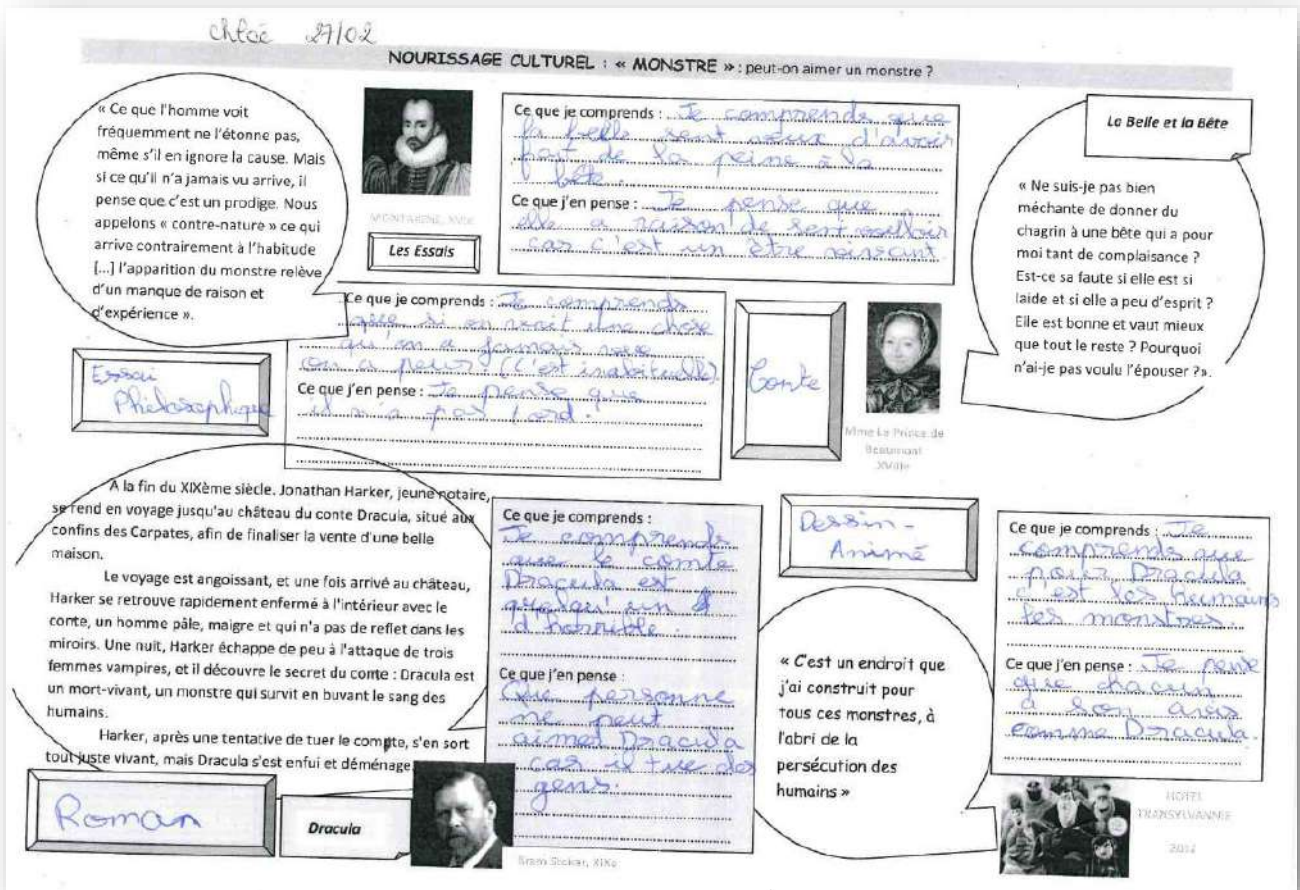 Chloé 27/02
NOURISSAGE CULTUREL : « MONSTRE » : peut-on aimer un monstre ?
« Ce que l'homme voit
fréquemment ne l'étonne pas,
même s'il en ignore la cause. Mais
si ce qu'il n'a jamais vu arrive, il
pense que c'est un prodige. Nous
appelons « contre-nature » ce qui
arrive contrairement à l'habitude
[...] l'apparition du monstre relève
d'un manque de raison et
d'expérience ».
MONTAIGNE, XVIe
Les Essais
Essai
Philosophique
Ce que je comprends : Je comprends que
la belle sent veux d'avoir
fait de la peine à la
bête.
Ce que j'en pense : Je pense que
elle a raison de sent voulloir
car c'est un être vivant.
La Belle et la Bête
« Ne suis-je pas bien
méchante de donner du
chagrin à une bête qui a pour
moi tant de complaisance ?
Est-ce sa faute si elle est si
laide et si elle a peu d'esprit ?
Elle est bonne et vaut mieux
que tout le reste ? Pourquoi
n'ai-je pas voulu l'épouser ?».
Ce que je comprends : Je comprends
que si on voit une chose
qu'on a jamais vue
on a peur. (C'est inabituelle).
Ce que j'en pense : Je pense que
il n'a pas tord.
Conte
Mme Le Prince de
Beaumont
XVIIIe
A la fin du XIXème siècle. Jonathan Harker, jeune notaire,
se rend en voyage jusqu'au château du conte Dracula, situé aux
confins des Carpates, afin de finaliser la vente d'une belle
maison.
Le voyage est angoissant, et une fois arrivé au château,
Harker se retrouve rapidement enfermé à l'intérieur avec le
conte, un homme pâle, maigre et qui n'a pas de reflet dans les
miroirs. Une nuit, Harker échappe de peu à l'attaque de trois
femmes vampires, et il découvre le secret du conte : Dracula est
un mort-vivant, un monstre qui survit en buvant le sang des
humains.
Harker, après une tentative de tuer le compte, s'en sort
tout juste vivant, mais Dracula s'est enfui et déménage
Roman
Dracula
Bram Stoker, XIXe
Ce que je comprends :
Je comprends
que le comte
Dracula est
quelqu'un
d'horrible.
Ce que j'en pense :
Que personne
ne peut
aimer Dracula
car il tue des
gens.
Dessin-
Animé
« C'est un endroit que
j'ai construit pour
tous ces monstres, à
l'abri de la
persécution des
humains »
Ce que je comprends : Je
comprends que
pour Dracula
c'est les humains
les monstres.
Ce que j'en pense : Je pense
que chacun
a son avis
comme Dracula.
HOTEL
TRANSYLVANNIE
2012